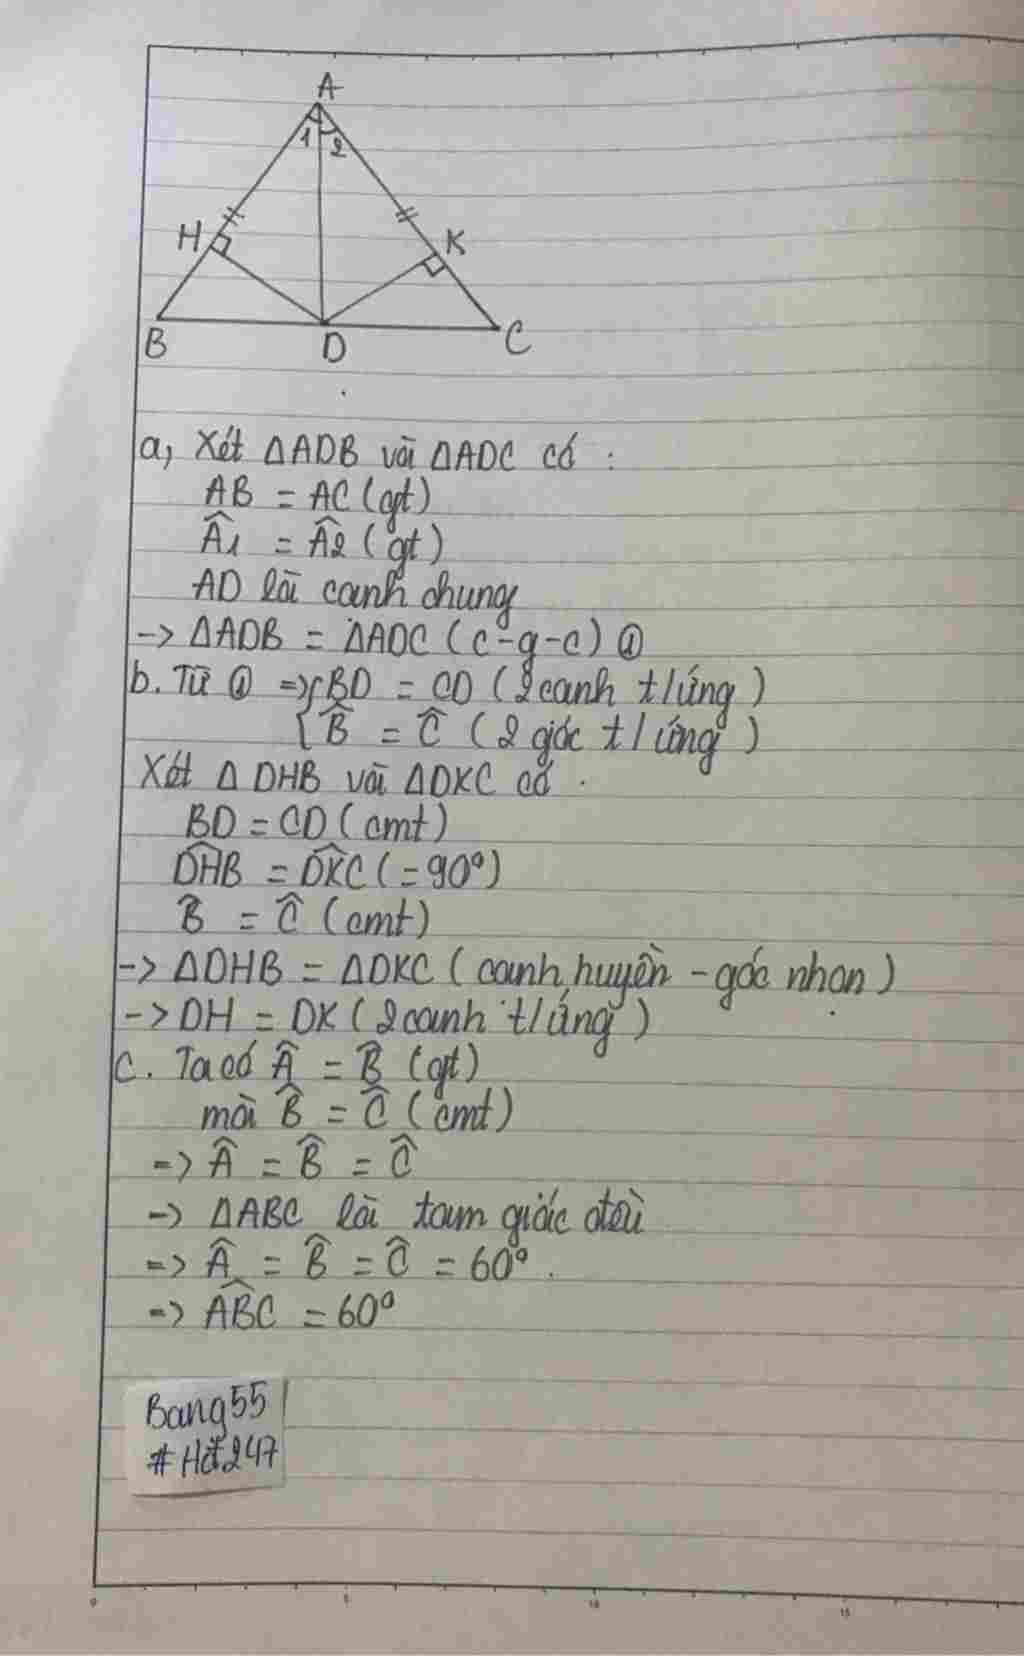 A
1 2
H K
B D C
a, Xét ΔADB và ΔADC có :
AB = AC (gt)
Â1 = Â2 (gt)
AD là cạnh chung
-> ΔADB = ΔADC (c-g-c) ①
b. Từ ① => { BD = CD (2 cạnh t/ứng)
B̂ = Ĉ (2 góc t/ứng)
Xét ΔDHB và ΔDKC có .
BD = CD (cmt)
D̂HB = D̂KC (= 90°)
B̂ = Ĉ (cmt)
-> ΔDHB = ΔDKC (cạnh huyền - góc nhọn)
-> DH = DK (2 cạnh t/ứng)
c. Ta có Â = B̂ (gt)
mà B̂ = Ĉ (cmt)
=> Â = B̂ = Ĉ
-> ΔABC là tam giác đều
=> Â = B̂ = Ĉ = 60° .
=> ÂBC = 60°
Bang55
#Hđ247
0 5 10 15